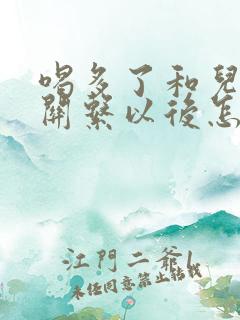 喝多了和兒
關繫以後怎
江門二爺l
未経同意禁止转载